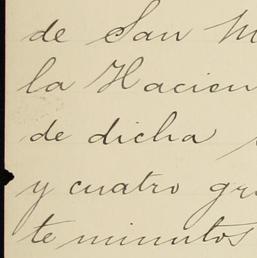 de San M
la Hacien
de dicha
y cuatro gra
te minutos